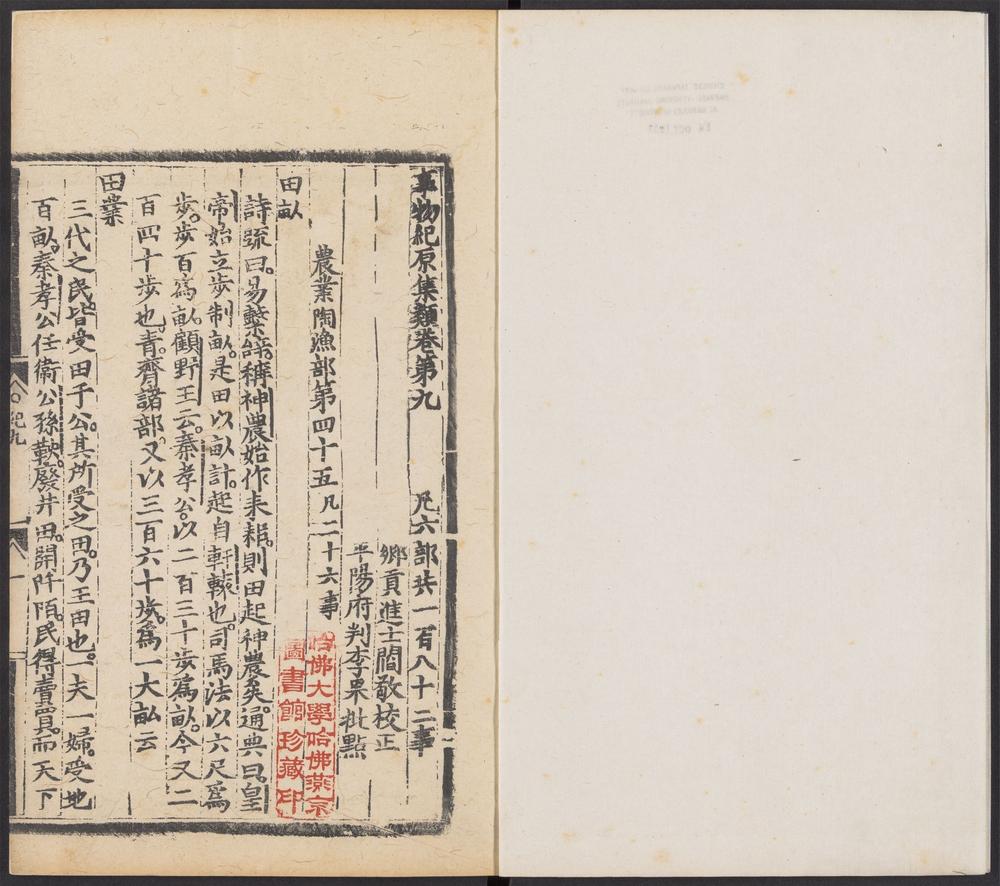 事物紀原集類卷第九　凡六部共一百八十二事
鄉貢進士閻敬校正
平陽府判李果批點
農業陶漁部第四十五凡二十六事
田畝
詩疏曰。易繫辭稱神農始作耒耜。則田起神農矣。通典曰。皇
帝始立步制畝。是田以畝計。起自軒轅也。司馬法以六尺爲
步。步百爲畝。顧野王云。秦孝公。以二百三十步爲畝。今又二
百四十步也。青齊諸部。又以三百六十步。爲一大畝云
田業
三代之民。皆受田于公。其所受之田。乃王田也。一夫一婦。受地
百畝。秦孝公任衛公孫鞅。廢井田。開阡陌。民得賣買。而天下
紀九
一
哈佛大學哈佛燕京
圖書館珍藏印